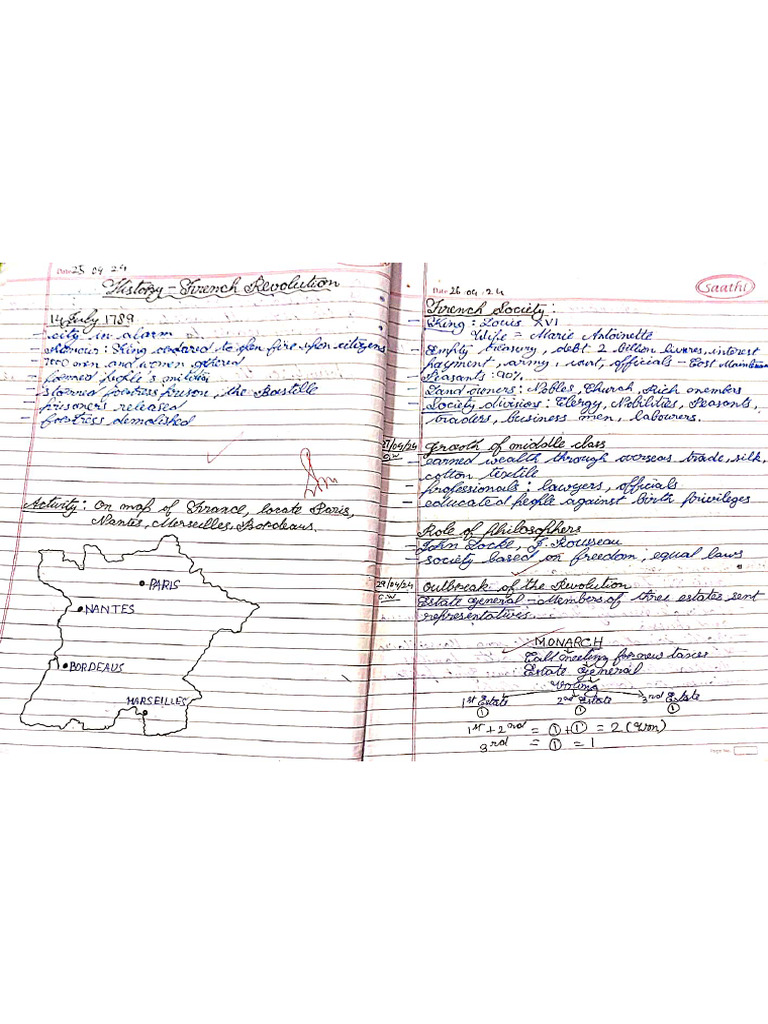 Date 25 04 24
History - French Revolution
14 July 1789
- City in alarm
- Rumour : King ordered to open fire upon citizens
- 7000 men and women gathered
- formed people's militia
- stormed fortress prison, the Bastille
- prisoners released
- fortress demolished
Activity : On map of France, locate Paris,
Nantes, Merseilles, Bordeaus.
PARIS
NANTES
BORDEAUS
MARSEILLES
Date 26 04 24
Saathi
French Society :
- King : Louis XVI
Wife = Marie Antoinette
- Empty treasury, debt 2 billion livres, interest
payment, army, court, officials - Cost
- Peasants : 90%
- Land owners : Nobles, Church Rich members
- Society divisions : Clergy, Nobilities, Peasants,
traders, business men, labourers.
27/04/24
C.W
Growth of middle class
- earned wealth through overseas trade, silk,
cotton textile
- professionals : lawyers, officials
- educated people against birth privileges
Role of Philosophers
- John Locke, J. Rousseau
- society based on freedom, equal laws
29/04/24
C.W
Outbreak of the Revolution
Estate general - Members of three estates sent
representatives.
MONARCH
Call meeting for new taxes
Estate general
Voting
1st Estate 2nd Estate 3rd Estate
1 1 1
1st + 2nd = 1 + 1 = 2 (Won)
3rd = 1 = 1
Page No.